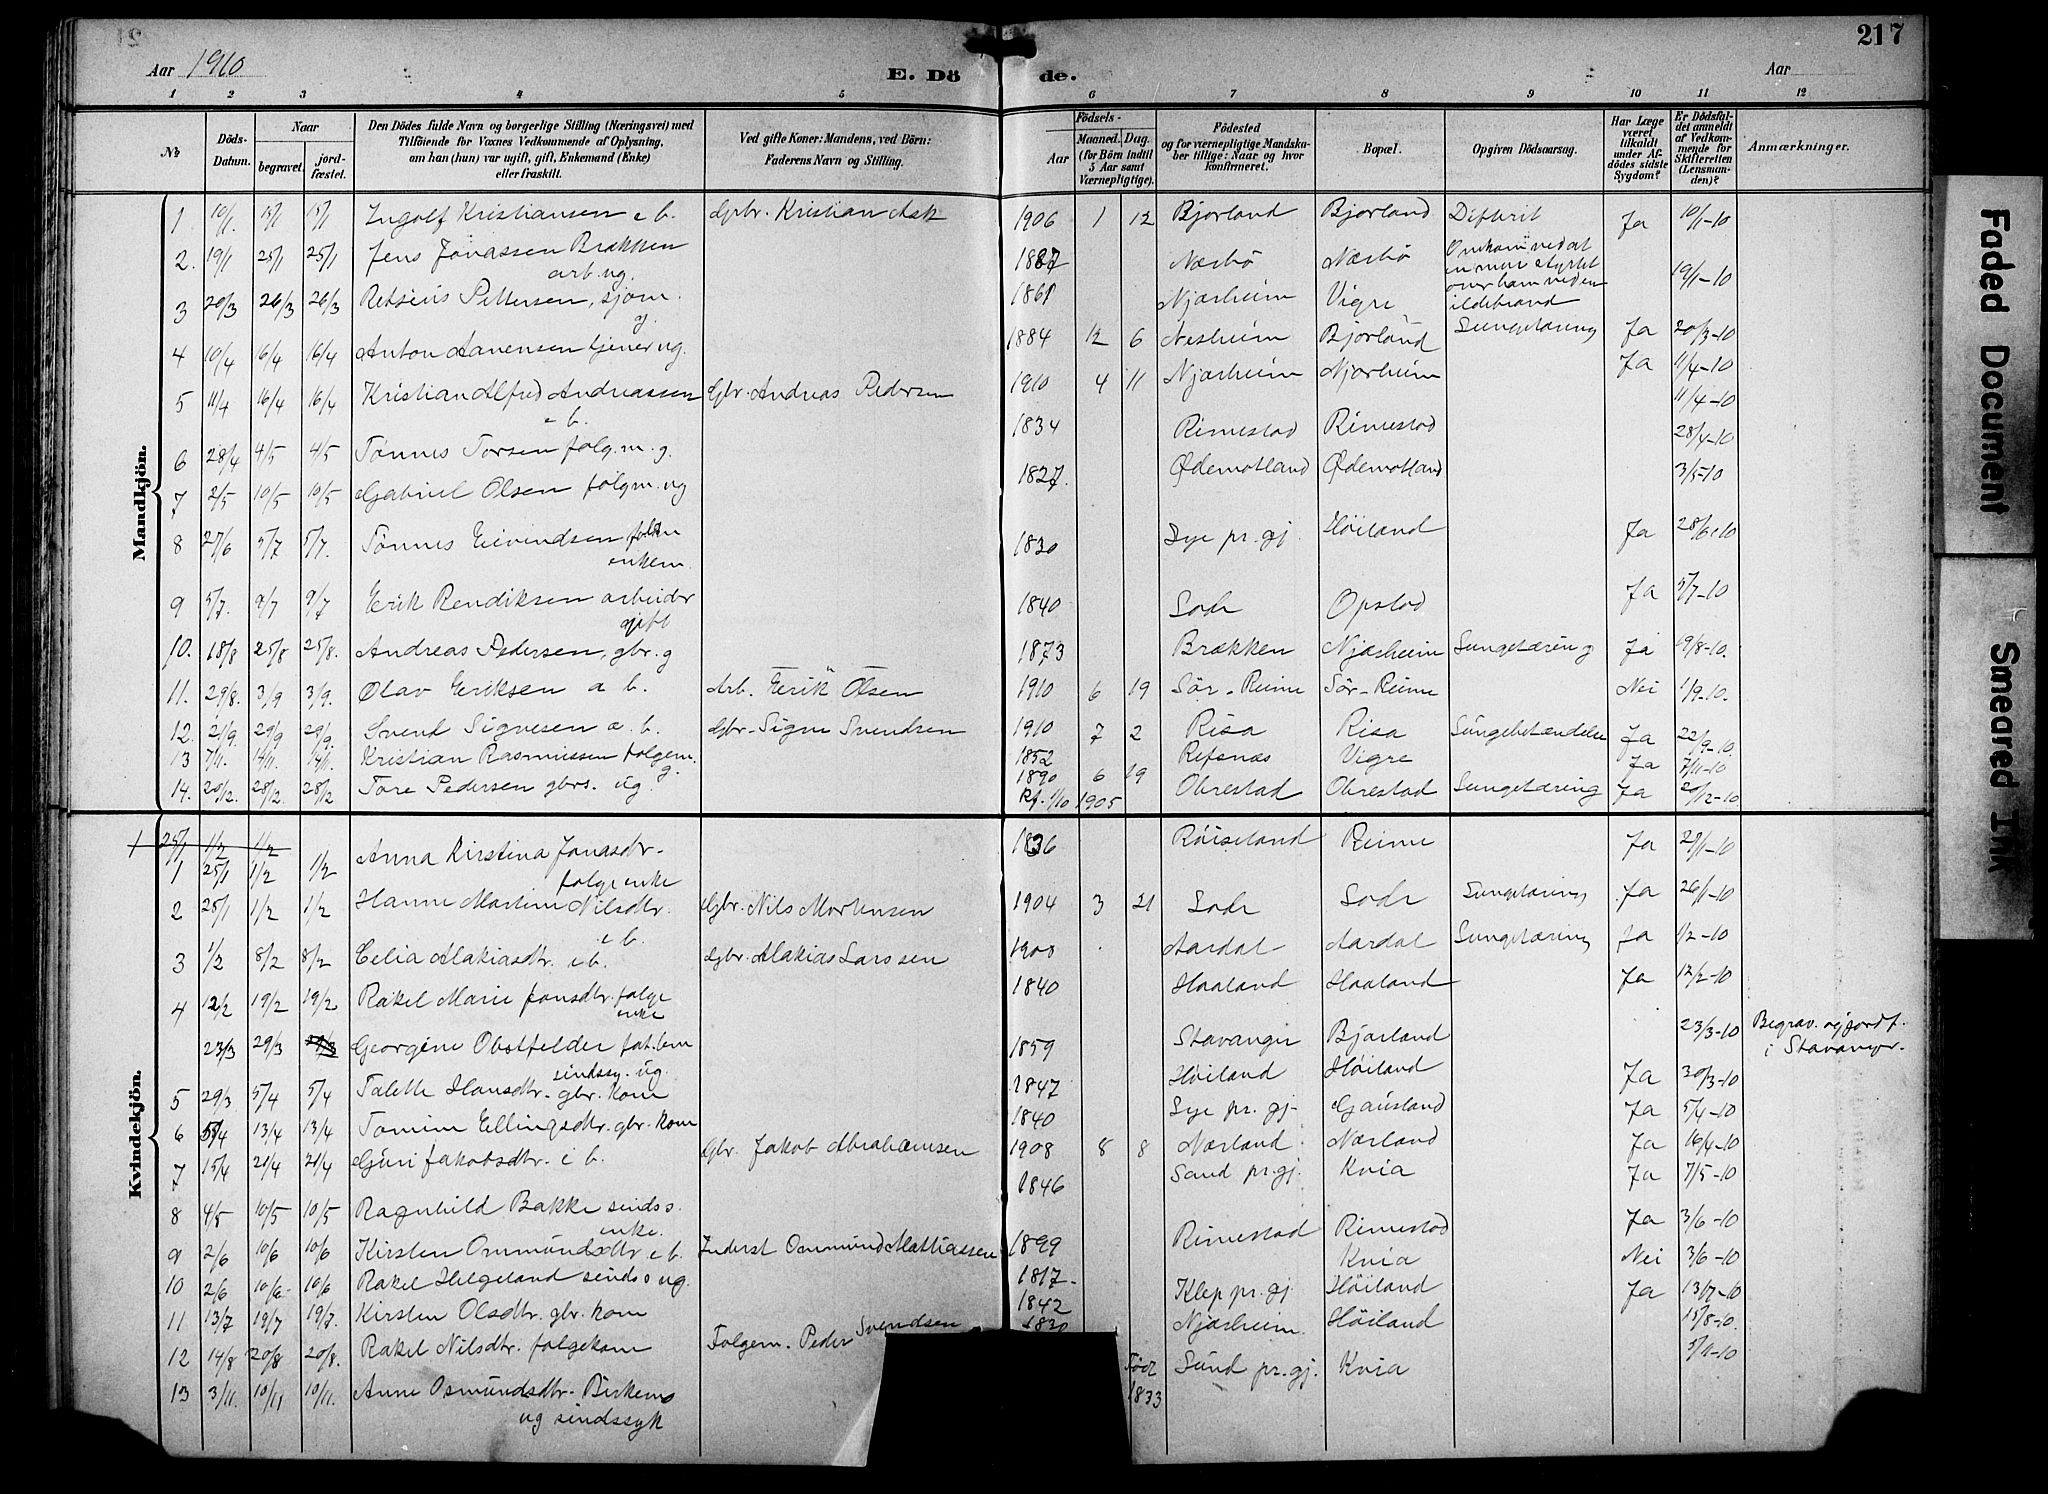 217
Aar 1910
E. Döde.
Aar
1 2 3 4 5 6 7 8 9 10 11 12
No
Döds-Datum.
Naar
begravet.
jord-fæstet.
Den Dödes fulde Navn og borgerlige Stilling (Næringsvei) med
Tilföiende for Voxnes Vedkommende af Oplysning,
om han (hun) var ugift, gift, Enkemand (Enke)
eller fraskilt.
Ved gifte Koner: Mandens, ved Börn:
Faderens Navn og Stilling.
Födsels-
Aar
Maaned.
Dag.
(for Börn indtil
5 Aar samt
Værnepligtige).
Födested
og for værnepligtige Mandska-
ber tillige: Naar og hvor
konfirmeret.
Bopæl.
Opgiven Dödsaarsag.
Har Læge
været
tilkaldt
under Af-
dödes sidste
Sygdom?
Er Dödsfal-
det anmeldt
af Vedkom-
mende for
Skifteretten
(Lensman-
den)?
Anmærkninger.
Mandkjön.
1 10/1. 15/1 15/1 Ingolf Kristiansen e b. Gbr. Kristian Ask 1906 1 12 Bjorland Bjorland Difterit Ja 10/1-10
2. 19/1 25/1 25/1 Jens Jonassen Brækken arb. ug. 1887 Nærbø Nærbø Omkom ved at en mur styrtet over ham ved en ildebrand 19/1-10
3 20/3 26/3 26/3 Refsius Pettersen, sjøm. g. 1861 Njærheim Vigre Lungetæring Ja 20/3-10
4 10/4 16/4 16/4 Anton Aanensen tjener ug. 1884 12 6 Nesheim Bjorland Ja 11/4-10
5 11/4 16/4 16/4 Kristian Alfred Andreassen e b. Gbr. Andreas Pedersen 1910 4 11 Njærheim Njærheim 11/4-10
6 28/4 4/5 4/5 Tønnes Torsen folg.m. g. 1834 Rimestad Rimestad 28/4-10
7 2/5 10/5 10/5 Gabriel Olsen folgm. ug 1827. Ødemotland Ødemotland 3/5-10
8 27/6 5/7 5/7. Tønnes Eivindsen enkem. 1830 Lye pr. gj. Høiland Ja 28/6-10
9 5/7. 9/7 9/7 Erik Rendiksen arbeider gift 1840 Lode Opstad Ja 5/7-10
10. 18/8 25/8 25/8. Andreas Pedersen, gbr. g 1873 Brækken Njærheim Lungetæring Ja 19/8-10.
11. 29/8. 3/9 3/9. Olav Eriksen a b. Arb. Erik Olsen 1910 6 19 Sør-Reime Sør-Reime Nei 1/9-10.
12. 21/9. 29/9 29/9. Svend Sigvesen a. b. Gbr. Sigve Svendsen 1910 7 2 Risa Risa Lungebetændelse Ja 22/9-10.
13 7/11. 14/11. 14/11. Kristian Rasmussen folgem. g. 1852 Refsnæs Vigre Ja 7/11-10
14. 20/12. 28/12. 28/12 Tore Pedersen gbrs. ug. 1890 6 19 Kf. 1/10 1905 Obrestad Obrestad Lungetæring Ja 20/12-10
Kvindekjön.
1 25/1 1/2 1/2
1 25/1 1/2 1/2 Anna Kirstina Jonasdtr. folge enke 1836 Røiseland Reime Ja 29/1-10
2 25/1 1/2 1/2 Hanne Martine Nilsdtr. e b. Gbr. Nils Mortensen 1904 3 21 Lode Lode Lungetæring Ja 26/1-10
3 1/2 8/2 8/2 Celia Malakiasdtr. e b. Gbr. Malakias Larssen 1900 Aardal Aardal Lungetæring Ja 1/2-10
4 12/2 19/2 19/2 Rakel Marie Jonsdtr. folge enke 1840 Haaland Haaland Ja 12/2-10
23/3 29/3 29/3 Georgine Obstfelder fat.lem sindssy. ug. 1859 Stavanger Bjorland 23/3-10 Begrav. og jordf. i Stavanger.
5 29/3 5/4 5/4 Talette Hansdtr. gbr. kone 1847 Høiland Høiland Ja 30/3-10
6 5/4 13/4 13/4 Tomine Ellingsdtr. gbr. kone 1840 Lye pr. gj. Gausland Ja 5/4-10
7 15/4 21/4 21/4 Guri Jakobsdtr. e b. Gbr. Jakob Abrahamsen 1908 8 8 Nærland Nærland Ja 16/4-10
8 4/5 10/5 10/5 Ragnhild Bakke sindss. enke. 1846 Sand pr. gj. Kvia Ja 7/5-10
9 2/6 10/6 10/6 Kirsten Ommundsdtr e b. Inderst Ommund Mattiassen 1899 Rimestad Rimestad Ja 3/6-10
10 2/6 10/6 10/6 Rakel Helgeland sindss ug. 1817. Kvia Nei 3/6-10
11 13/7 19/7 19/7. Kirsten Olsdtr. gbr. kone 1842 Klep pr. gj Høiland Ja 13/7-10
12 14/8 20/8 20/8. Rakel Nilsdtr. folgekone Folgem. Peder Svendsen 1830 Njærheim. Høiland 15/8-10.
13 3/11. 10/11 10/11. Anne Osmundsdtr. Birkemo ug sindssyk Født 1833 Sund pr. gj. Kvia 5/11-10
Faded Document
Smeared Ink